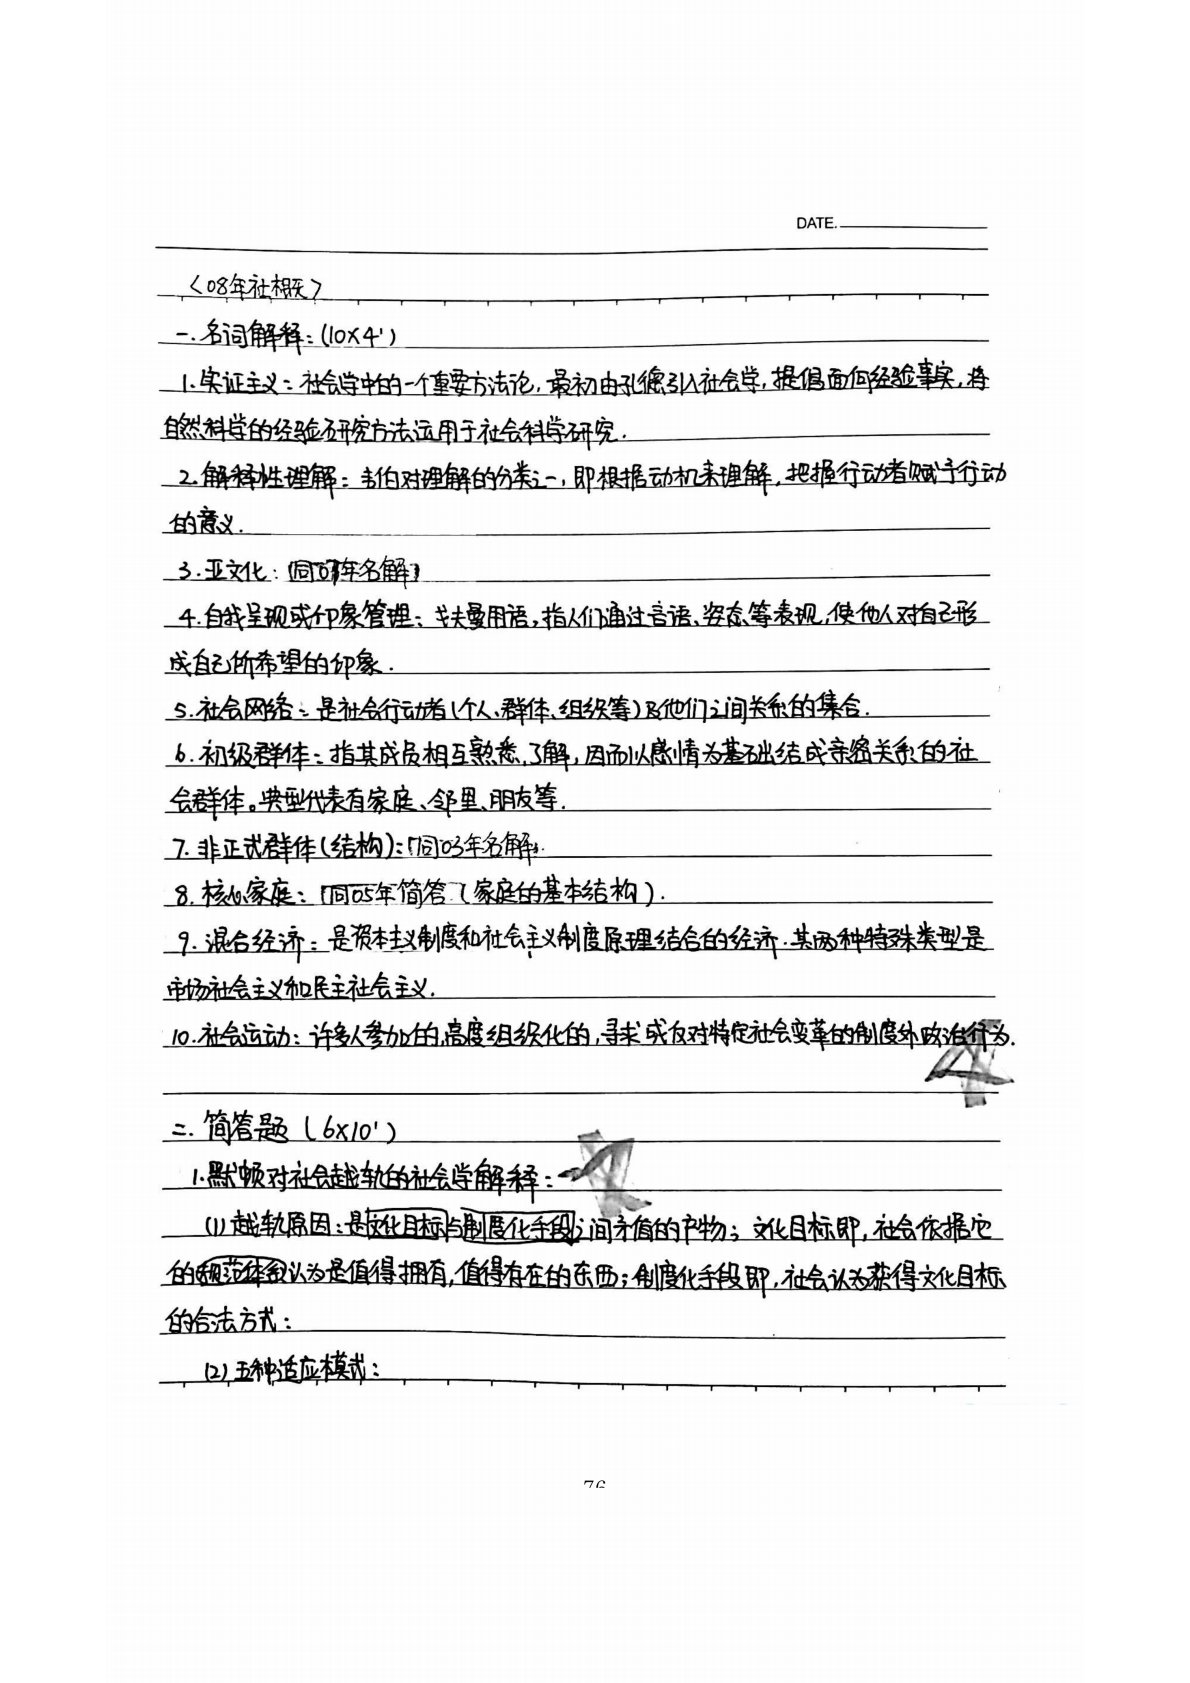 DATE.
〈08年社概〉
一.名词解释:(10×4')
1.实证主义:社会学中的一个重要方法论,最初由孔德引入社会学,提倡面向经验事实,将
自然科学的经验研究方法运用于社会科学研究.
2.解释性理解:韦伯对理解的分类之一,即根据动机来理解,把握行动者赋予行动
的意义.
3.亚文化:(同07年名解)
4.自我呈现或印象管理:戈夫曼用语,指人们通过言语、姿态等表现,使他人对自己形
成自己所希望的印象.
5.社会网络:是社会行动者(个人、群体、组织等)及他们之间关系的集合.
6.初级群体:指其成员相互熟悉、了解,因而以感情为基础结成亲密关系的社
会群体。典型代表有家庭、邻里、朋友等.
7.非正式群体(结构):「同03年名解」.
8.核心家庭:「同05年简答」(家庭的基本结构).
9.混合经济:是资本主义制度和社会主义制度原理结合的经济.其两种特殊类型是
市场社会主义和民主社会主义.
10.社会运动:许多人参加的,高度组织化的,寻求或反对特定社会变革的制度外政治行为.
二.简答题(6×10')
1.默顿对社会越轨的社会学解释:
(1)越轨原因:是文化目标与制度化手段之间矛盾的产物;文化目标即,社会依据它
的规范体系认为是值得拥有,值得存在的东西;制度化手段即,社会认为获得文化目标
的合法方式:
(2)五种适应模式:
76